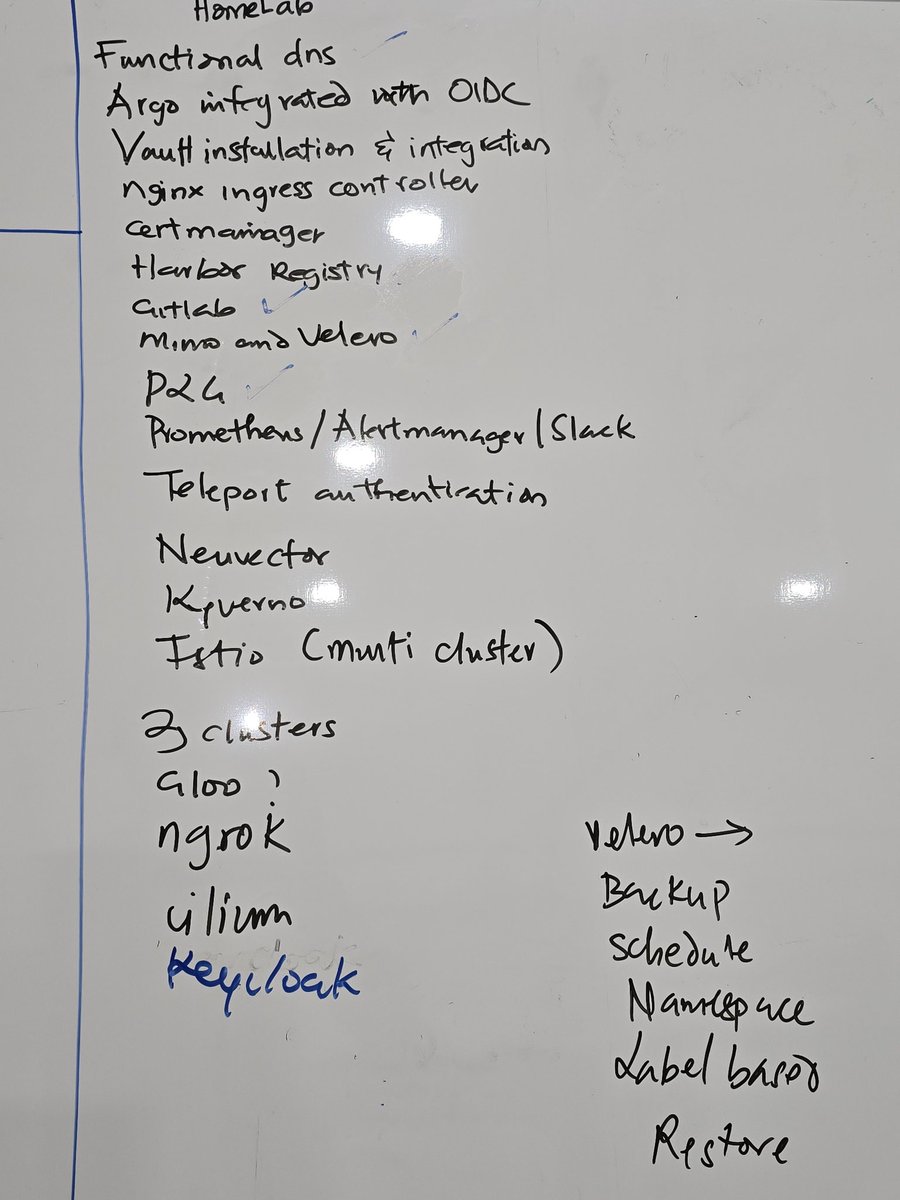 HomeLab
Functional dns
Argo integrated with OIDC
Vault installation & integration
nginx ingress controller
certmanager
Harbor Registry
Gitlab
Minio and Velero
Prometheus/Alertmanager/Slack
Teleport authentication
Neuvector
Kyverno
Istio (multi cluster)
3 clusters
Gloo ?
ngrok
cilium
Keycloak
Velero →
Backup
schedule
Namespace
Label based
Restore